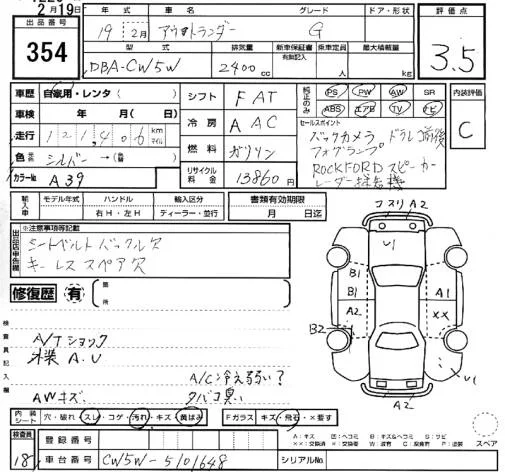 2月19日
出品番号
354
年式 車名 グレード ドア・形状
19年2月 アウトランダー G
型式 排気量 新車保証書 有無記入 乗車定員 最大積載量
DBA-CW5W 2400cc 人 kg
評価点
3.5
車歴 自家用・レンタ( )
車検 年 月( 日)
走行 121,406 km マイル
色 シルバー→( )
カラーNo A39
シフト FAT
冷房 AAC
燃料 ガソリン
リサイクル料金 13860円
純正のみ PS PW AW SR
ABS エアB TV ナビ
セールスポイント
バックカメラ ドラレコ前後
フォグランプ
ROCKFORD スピーカー
レーダー探知機
内装評価
C
輸入車 モデル年式 ハンドル 輸入区分
右H・左H ディーラー・並行
書類有効期限
月 日迄
出品店申告欄 ※注意事項等記載
シートベルトバックル欠
キーレススペア欠
修復歴 有 箇所
検査員記入欄
A/Tショック
外装A.U
A/C冷え弱い?
AWキズ タバコ臭い
コスリA2
U1
B1
B1
A1
A2
XX
B2
U1
A2
内装シート 穴・破れ・スレ・コゲ・汚れ・キズ・黄ばみ
Fガラス キズ・飛石・×要す
スペア
検査員
181
登録番号
車台番号 CW5W-5101648
シリアルNo.
A:キズ